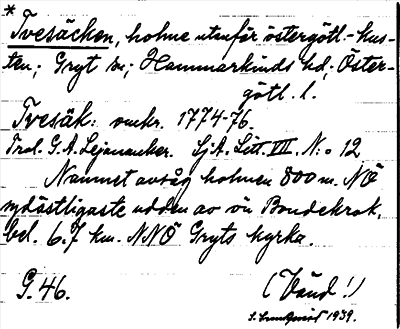 *
Tvesäcken, holme utanför östergötl.-kus-
ten; Gryt sn; Hammarkinds hd; Öster-
götl. l.
Tvesäk: omkr. 1774-76.
Prol. G. A. Lejonancker. SjA. Litt. VII, N:o 12
Namnet avsåg holmen 800 m. NÖ
nordostligaste udden av ön Bondekrok,
bel. 6.7 km. NNÖ Gryts kyrka.
G. 46. (Vänd!)
1939.